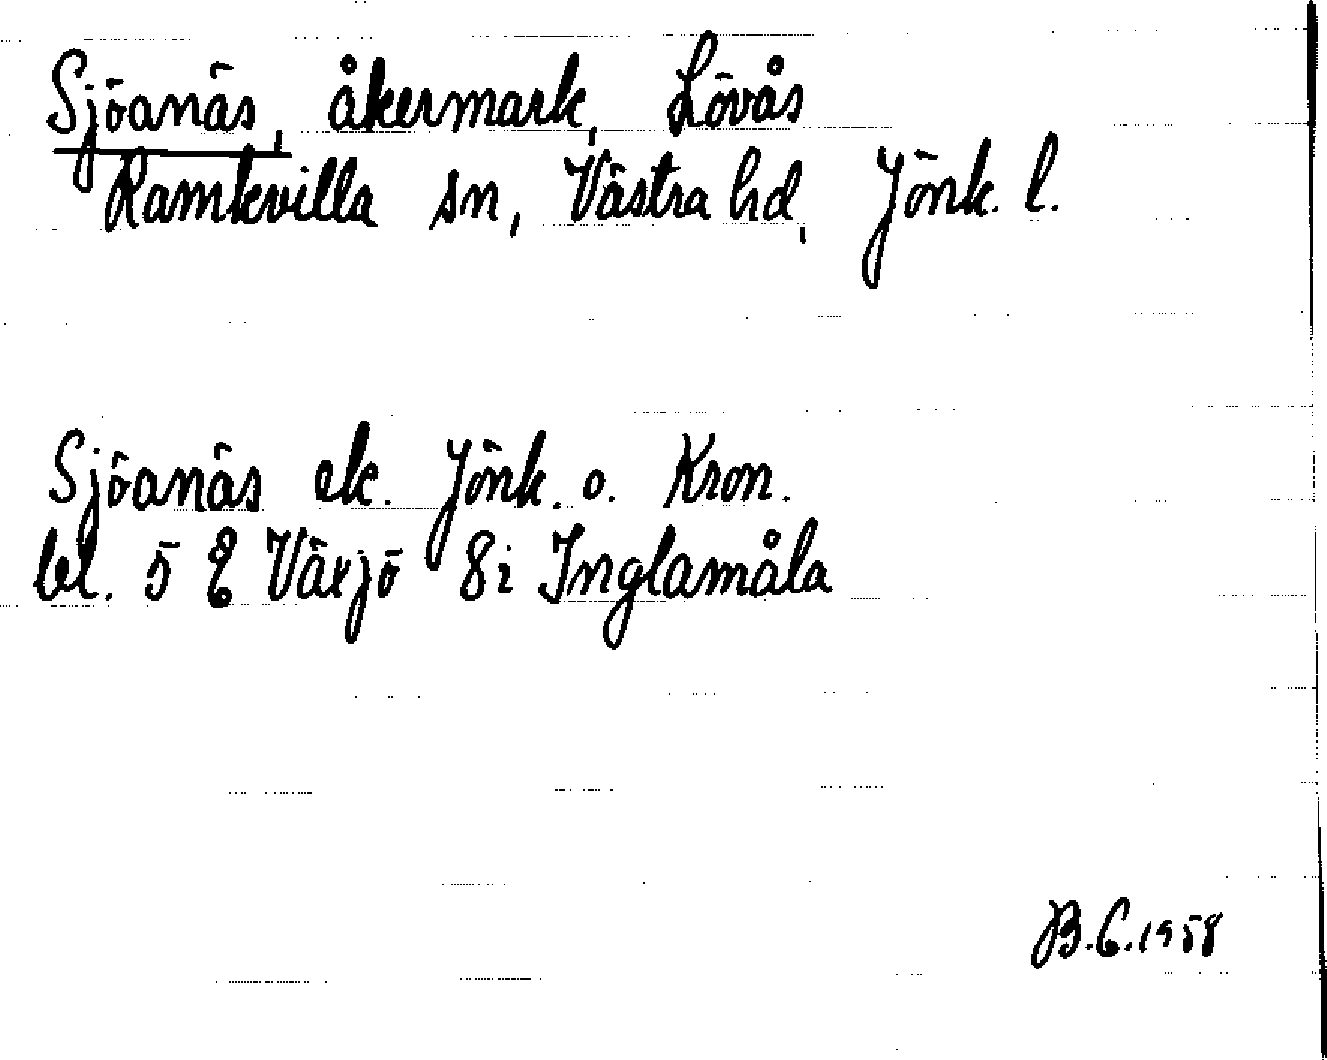 Sjöanäs, åkermark, Lövås
Ramkvilla sn, Västra hd, Jönk. l.
Sjöanäs ek. Jönk. o. Kron.
bl. 5 E Växjö 8i Inglamåla
B.C.1958